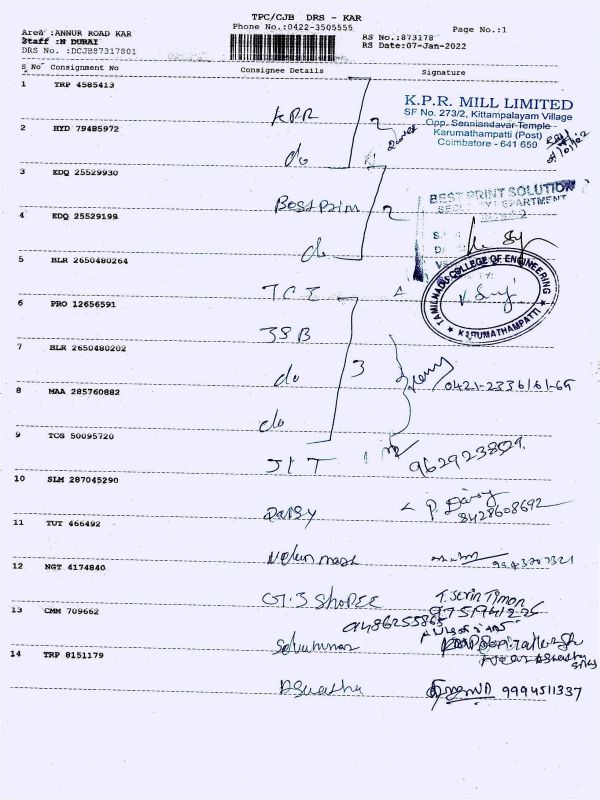 TPC/CJB DRS - KAR
Phone No.:0422-3505555
Page No.:1
Area :ANNUR ROAD KAR
Staff :N DURAI
DRS No. :DCJB87317801
RS No.:873178
RS Date:07-Jan-2022
S No Consignment No Consignee Details Signature
1 TRP 4585413 KPR
K.P.R. MILL LIMITED
SF No. 273/2, Kittampalayam Village
Opp. Senniandavar Temple
Karumathampatti (Post)
Coimbatore - 641 659
2 HYD 79485972 do
3 EDQ 25529930 Bestprin 2
BEST PRINT SOLUTION
4 EDQ 25529199 do
5 BLR 2650480264 TCE
TAMILNADU COLLEGE OF ENGINEERING
KARUMATHAMPATTI
6 PRO 12656591 JSB
7 BLR 2650480202 do 3
0421-2336161-69
8 MAA 285760882 do
9 TCS 50095720 JIT
9629238529
10 SLM 287045290 Daisy P. Daisy
8428608692
11 TUT 466492
12 NGT 4174840 G.S Shopee
9486255865
13 CMM 709662 Selvakumar
14 TRP 8151179 Aswatha 9994511337